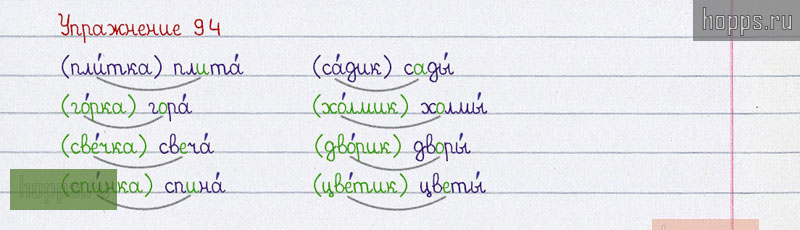 hopps.ru
Упражнение 94
(пли́тка) плита́ (са́дик) сады́
(го́рка) гора́ (хо́лмик) холмы́
(све́чка) свеча́ (дво́рик) дворы́
(спи́нка) спина́ (цве́тик) цветы́
hopps.ru